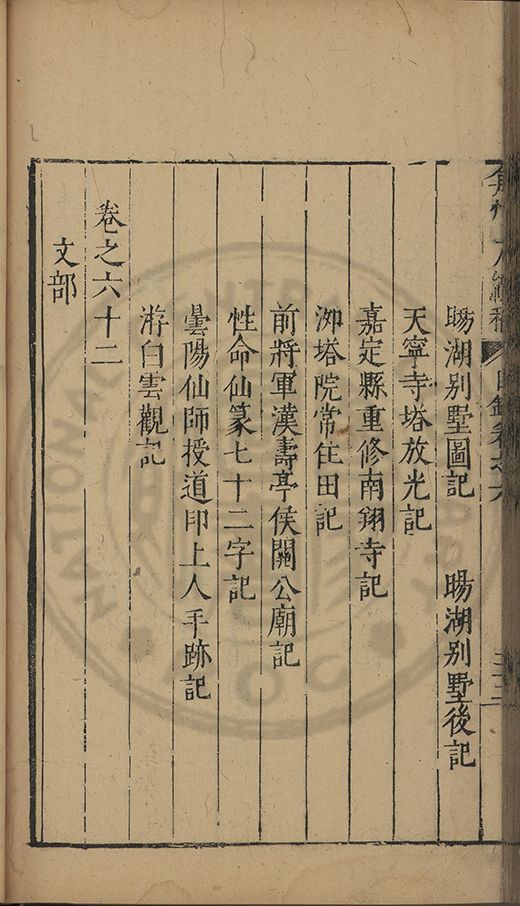 暘湖別墅圖記　暘湖別墅後記
天寧寺塔放光記
嘉定縣重修南翔寺記
泖塔院常住田記
前將軍漢壽亭侯關公廟記
性命仙篆七十二字記
曇陽仙師授道印上人手跡記
游白雲觀記
卷之六十二
文部